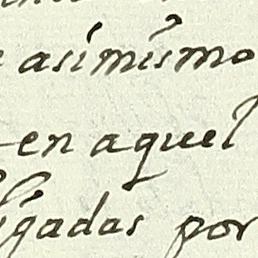 asímísmo
en aquel
ligadas por